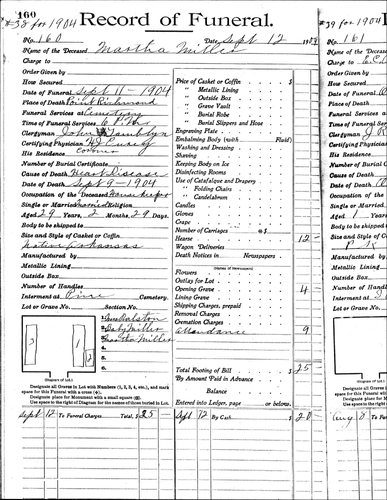 160
#38 for 1904
Record of Funeral.
No. 160
Date, Sept 12 190
Name of the Deceased Martha Miller
Charge to
Order Given by
How Secured
Date of Funeral Sept 11 - 1904
Place of Death Point Richmond
Funeral Services at Cemetery
Time of Funeral Services
Clergyman John
Certifying Physician
His Residence Coroner
Number of Burial Certificate
Cause of Death Heart Disease
Date of Death Sept 9 - 1904
Occupation of the Deceased Housekeeper
Single or Married Married Religion
Aged 29 Years, 2 Months, 29 Days.
Body to be shipped to
Size and Style of Casket or Coffin
Native Arkansas
Manufactured by
Metallic Lining
Outside Box
Number of Handles
Interment at Cemetery.
Lot or Grave No. Section No.
3
1
2
(Diagram of Lot.)
1. Ralston
2. Baby Miller
3. Martha Miller
4.
5.
6.
Designate all Graves in Lot with Numbers (1, 2, 3, 4, etc.), and mark
space for this Funeral with a cross (+).
Designate place for Monument with a small square (□).
Use space to the right of Diagram for the names of those buried in Lot.
Price of Casket or Coffin $
" Metallic Lining
" Outside Box
" Grave Vault
" Burial Robe
" Burial Slippers and Hose
Engraving Plate
Embalming Body (with Fluid)
Washing and Dressing
Shaving
Keeping Body on Ice
Disinfecting Rooms
Use of Catafalque and Drapery
" Folding Chairs
" Candelabrum
Candles
Gloves
Crape
Number of Carriages @ $
Hearse 12 -
Wagon Deliveries
Death Notices in Newspapers
(Names of Newspapers)
Flowers
Outlay for Lot
Opening Grave 4 -
Lining Grave
Shipping Charges, prepaid
Removal Charges
Cremation Charges
Attendance 9
Total Footing of Bill $ 25 -
By Amount Paid in Advance
Balance
Entered into Ledger, page or below.
Sept 12 To Funeral Charges Total, $ 25 -
Sept 12 By Cash $ 20
#39 for 1904
No. 161
Name of the Deceased
Charge to
Order Given by
How Secured
Date of Funeral
Place of Death
Funeral Services at
Time of Funeral
Clergyman
Certifying Physician
His Residence
Number of Burial
Cause of Death
Date of Death
Occupation of the
Single or Married
Aged 1 Years
Body to be shipped
Size and Style of
Manufactured by
Metallic Lining
Outside Box
Number of Handles
Interment at
Lot or Grave No.
(Diagram of
Designate all
space for this
Designate place
Use space to
Aug 8